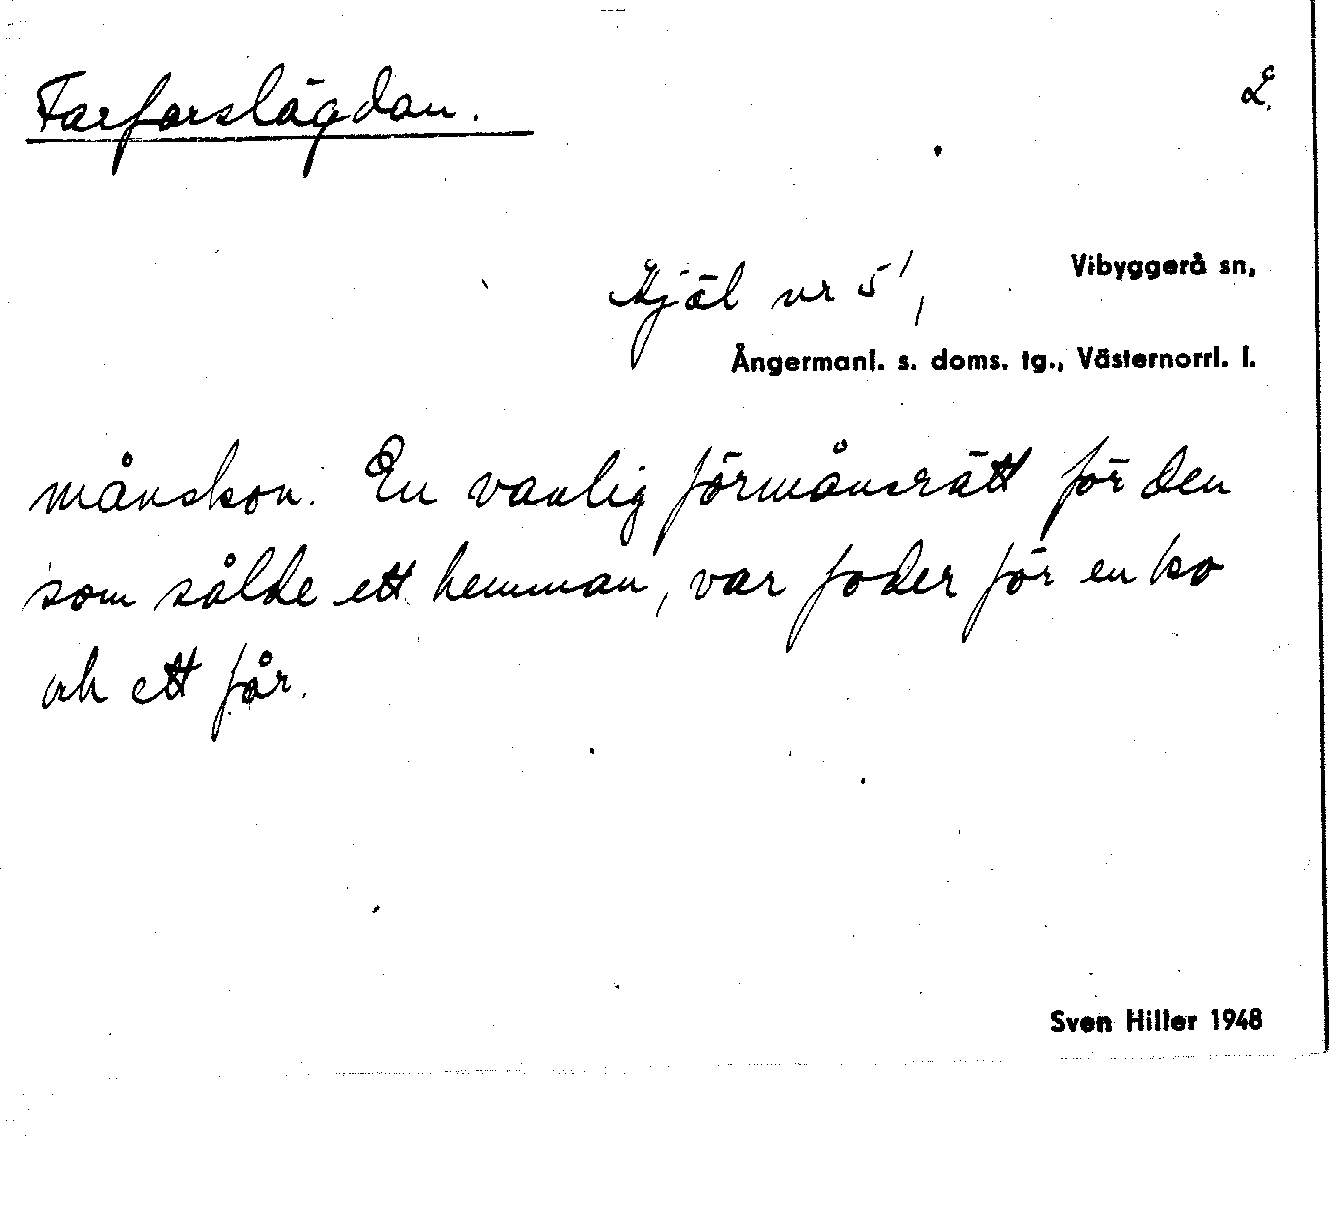 Farforslägdan.
2.
Kjäl nr 5¹,
Vibyggerå sn,
Ångermanl. s. doms. tg., Västernorrl. l.
månskon. En vanlig förmånsrätt för den
som sålde ett hemman, var foder för en ko
och ett får.
Sven Hiller 1948